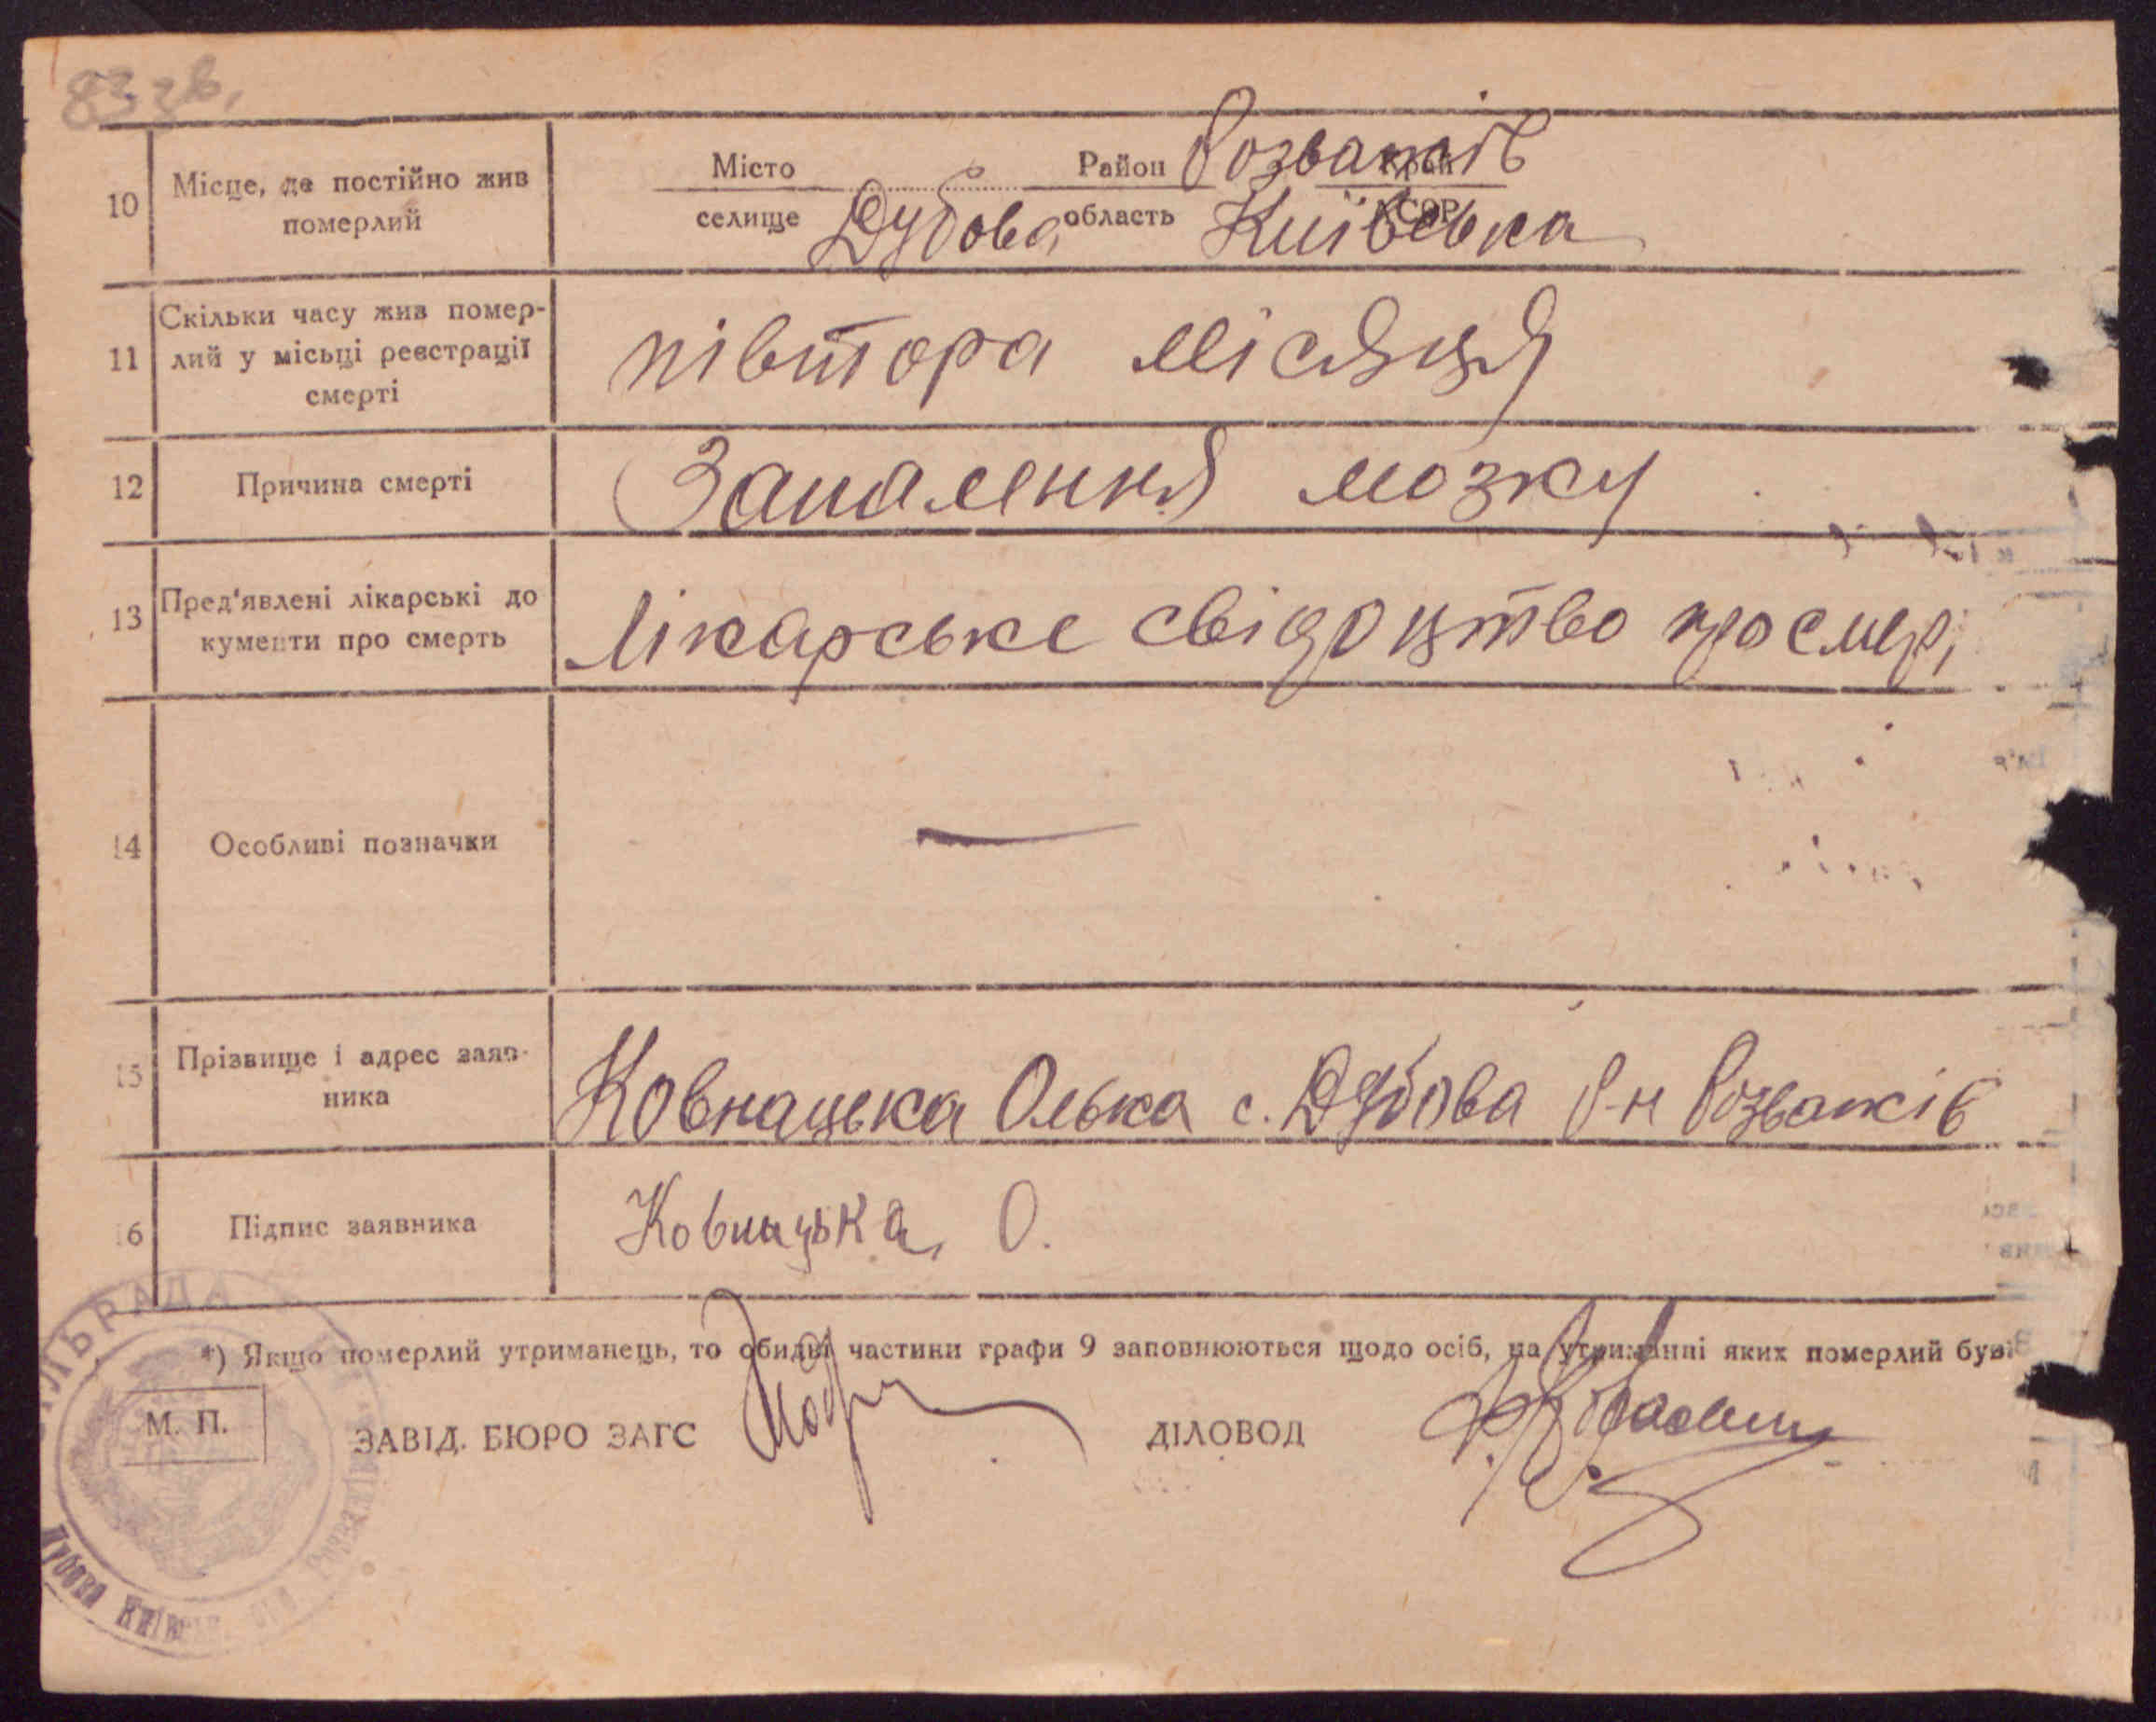 83 зв.
10 Місце, де постійно жив померлий
Місто Район Розважів Край
селище Дубова область Київська АСРР
11 Скільки часу жив помер-
лий у місьці реєстрації
смерті
півтора місяця
12 Причина смерті Запалення мозку
13 Пред'явлені лікарські до
кументи про смерть
Лікарське свідоцтво про смер,
14 Особливі позначки —
15 Прізвище і адрес заяв-
ника
Ковнацька Олька с. Дубова Р-н Розважів
16 Підпис заявника Ковнацька, О.
*) Якщо померлий утриманець, то обидві частини графи 9 заповнюються щодо осіб, на утриманні яких померлий був.
М. П. ЗАВІД. БЮРО ЗАГС ДІЛОВОД
СІЛЬРАДА
Дубова